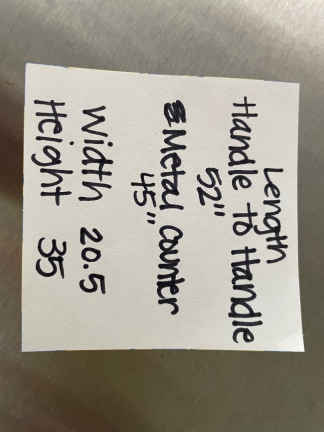 Length
Handle to Handle
52"
Metal Counter
45"
Width 20.5
Height 35